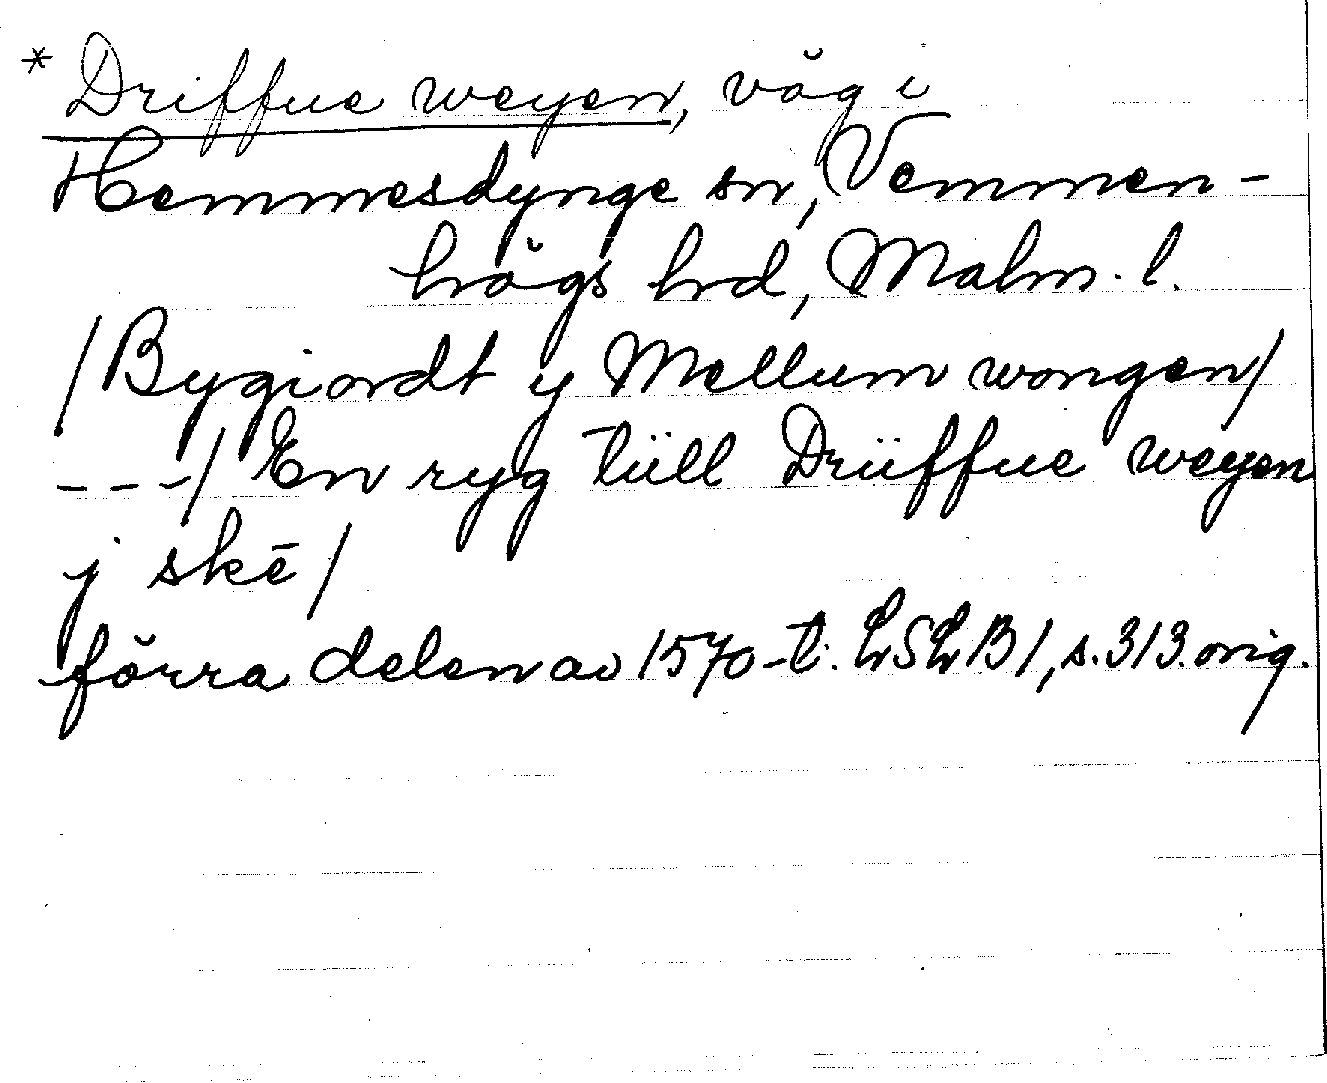 * Driffue weyen, väg i
Hemmesdynge sn, Vemmen-
högs hrd, Malm. l.
/Bygiordt y Mellum wongen/
---/ En ryg tüll Drüffue weyen
j skē/
förra delen av 1570-t. LSLB1, s. 313. orig.